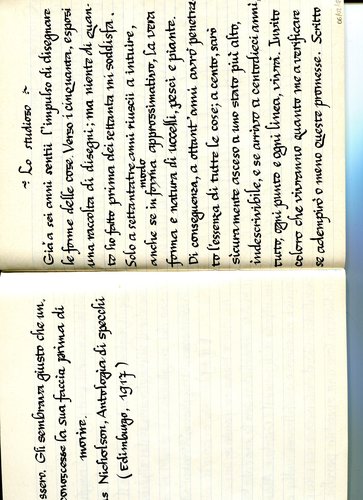 ~ Lo studioso ~
Già a sei anni sentii l'impulso di disegnare
le forme delle cose. Verso i cinquanta, esposi
una raccolta di disegni; ma niente di quan-
to ho fatto prima dei settanta mi soddisfa.
Solo a settantatre anni riuscii a intuire,
modo
anche se in forma approssimativo, la vera
forma e natura di uccelli, pesci e piante.
Di conseguenza, a ottant'anni avrò penetra
to l'essenza di tutte le cose; a cento, sarò
sicuramente asceso a uno stato più alto,
indescrivibile, e se arrivo a centodieci anni,
tutto, ogni punto e ogni linea, vivrà. Invito
coloro che vivranno quanto me a verificare
se adempirò o meno queste promesse. Scritto
ssero. Gli sembrava giusto che un,
conoscesse la sua faccia prima di
morire.
s Nicholson, Antologia di specchi
(Edimburgo, 1917)